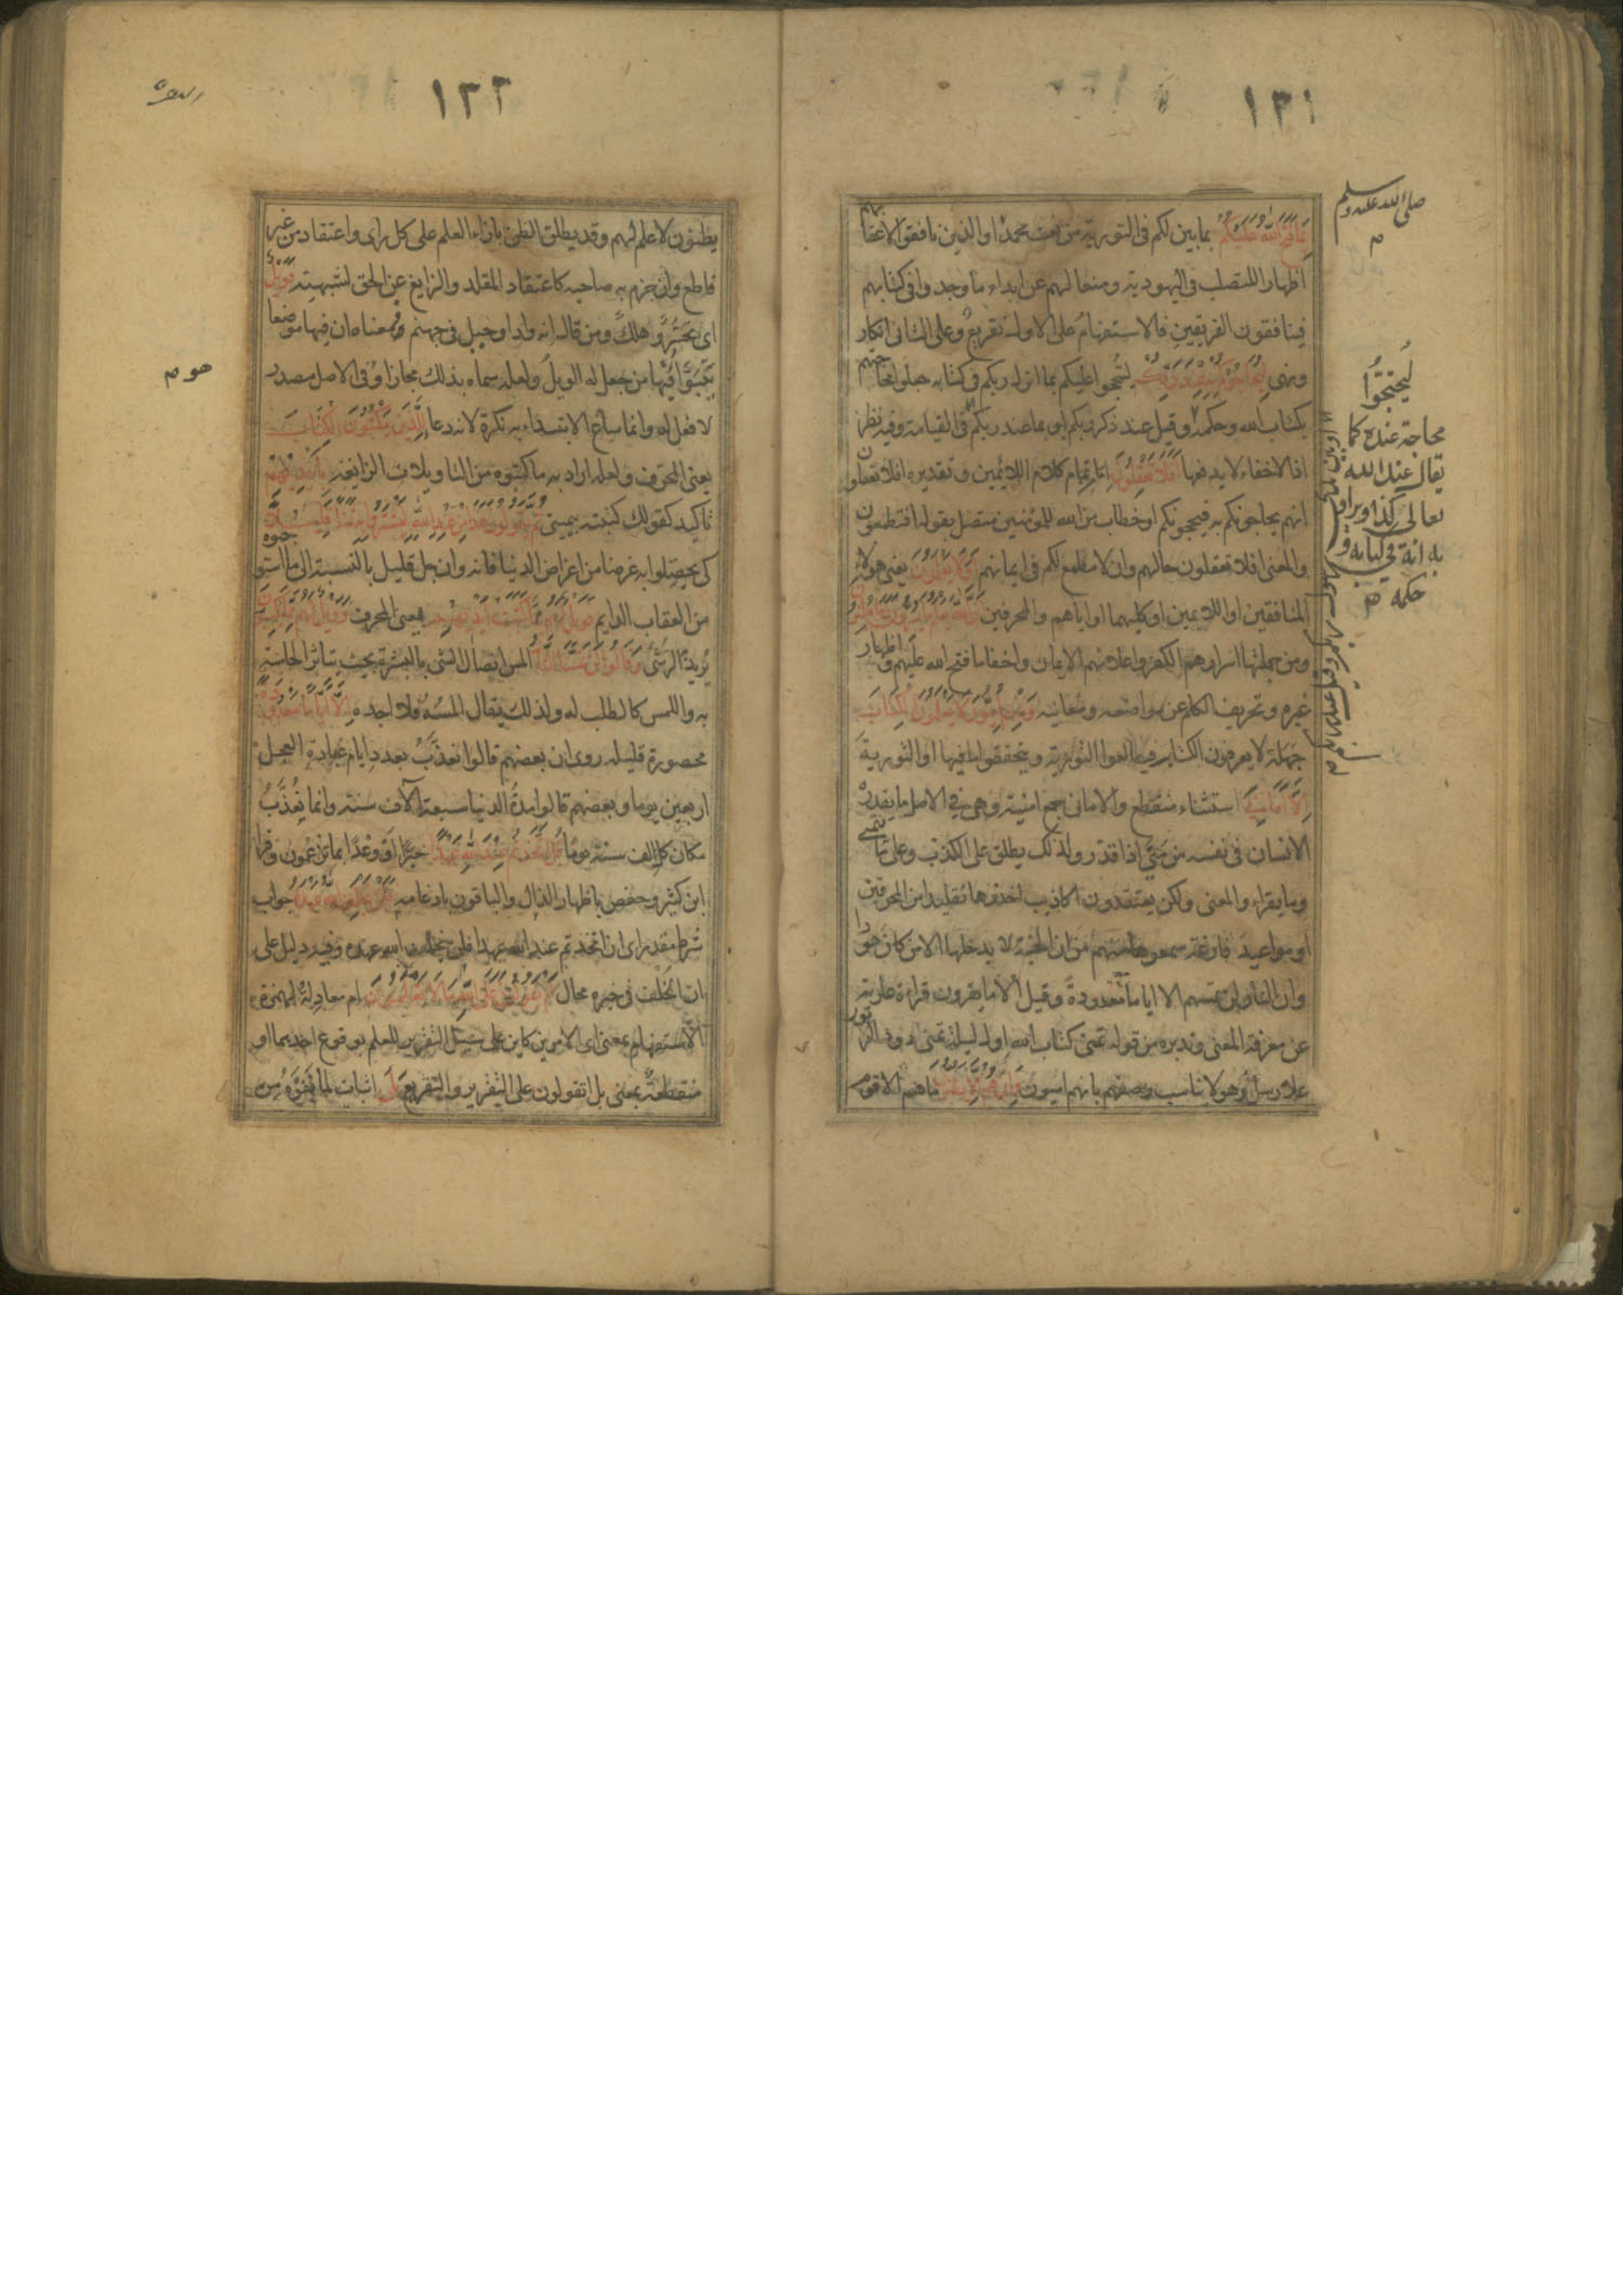 ١٣١
بما فتح الله عليكم بما بين لكم في التورية من نعت محمد او الذين نافقوا لاعقابهم
اظهارا للتصلب في اليهودية ومنعا لهم عن ابداء ما وجدوا في كتابهم
فينافقون الفريقين فالاستفهام على الاول تقريع وعلى الثاني انكار
ونهي ليحاجوكم به عند ربكم ليحتجوا عليكم بما انزل ربكم في كتابه جعلوا محاجتهم
بكتاب الله وحكمه وقيل عند ذكر ربكم او بما عند ربكم او في القيامة وفيه نظر
اذ الاخفاء لا يدفعها افلا تعقلون اما تمام كلام اللائمين وتقديره افلا تعقلون
انهم يحاجونكم به فيحجونكم او خطاب من الله للمؤمنين متصل بقوله افتطمعون
والمعنى افلا تعقلون حالهم وان لا مطمع لكم في ايمانهم اولا يعلمون يعني هولاء
المنافقين او اللايمين او كليهما او اياهم والمحرفين ان الله يعلم ما يسرون وما يعلنون
ومن جملتها اسرارهم الكفر واعلانهم الايمان واخفا ما فتح الله عليهم واظهار
غيره وتحريف الكلم عن مواضعه ومعانيه ومنهم اميون لا يعلمون الكتاب
جهلة لا يعرفون الكتابة فيطالعوا التورية ويتحققوا ما فيها او التورية
الا اماني استثناء منقطع والاماني جمع امنية وهي في الاصل ما يقدره
الانسان في نفسه من منى اذا قدر ولذلك يطلق على الكذب وعلى ما يتمنى
وما يقراء والمعنى ولكن يعتقدون اكاذيب اخذوها تقليدا من المحرفين
او مواعيد فارغة سمعوها منهم من ان الجنة لا يدخلها الا من كان هودا
وان النار لن تمسهم الا اياما معدودة وقيل الا ما يقرون قراءة عارية
عن معرفة المعنى وتدبره من قوله تمنى كتاب الله اول ليلة تمنى داود الزبور
على رسل وهو لا يناسب وصفهم بانهم اميون وان هم الا يظنون ما هم الا قوم
صلى الله عليه وسلم
م
ليحتجوا
محاجة عنده كما
يقال عند الله
تعالى كذا ويراد
به انه في كتابه و
حكمه م
١٣٢
البقرة
يظنون لا علم لهم وقد يطلق الظن بازاء العلم على كل راي واعتقاد من غير
قاطع وان جزم به صاحبه كاعتقاد المقلد والزايغ عن الحق لشبهته فويل
اي تحسر وهلك ومن قال انه واد او جبل في جهنم فمعناه ان فيها موضعا
يتبوا فيها من جعل له الويل ولعله سماه بذلك مجازا وفي الاصل مصدر
هو م
لا فعل له وانما ساغ الابتداء به نكرة لانه دعا للذين يكتبون الكتاب
يعني المحرف ولعله اراد به ما كتبوه من التاويلات الزايغة بايديهم
تاكيد كقولك كتبته بيميني ثم يقولون هذا من عند الله ليشتروا به ثمنا قليلا
كي يحصلوا به غرضا من اعراض الدنيا فانه وان جل قليل بالنسبة الى ما استوجبوه
من العقاب الدايم فويل لهم مما كتبت ايديهم يعني المحرف وويل لهم مما يكسبون
يريد الرشى وقالوا لن تمسنا النار المس اتصال الشي بالبشرة بحيث يتاثر الحاسة
به واللمس كالطلب له ولذلك يقال المسه فلا اجده الا اياما معدودة
محصورة قليلة روى ان بعضهم قالوا نعذب بعدد ايام عبادة العجل
اربعين يوما وبعضهم قالوا مدة الدنيا سبعة آلاف سنة وانما نعذب
مكان كل الف سنة يوما قل اتخذتم عند الله عهدا خبرا او وعدا بما تزعمون وقرا
ابن كثير وحفص باظهار الذال والباقون بادغامه فلن يخلف الله عهده جواب
شرط مقدر اي ان اتخذتم عند الله عهدا فلن يخلف الله عهده وفيه دليل على
ان الخلف في خبره محال ام تقولون على الله ما لا تعلمون ام معادلة لهمزة
الاستفهام بمعنى اي الامرين كاين على سبيل التقرير للعلم بوقوع احديهما او
منقطعة بمعنى بل اتقولون على التقرير والتقريع بلى اثبات لما نفوه من